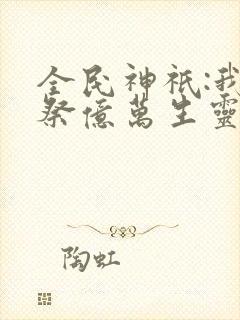 全民神祇:我
祭億萬生靈
陶虹